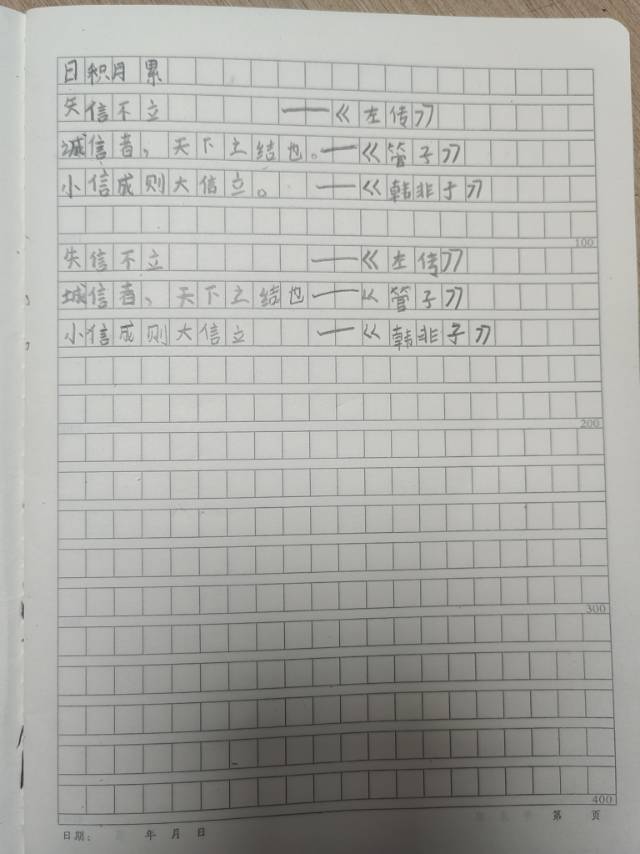 日积月累
失信不立 ——《左传》
诚信者，天下之结也。——《管子》
小信成则大信立。 ——《韩非子》
100
失信不立 ——《左传》
诚信者，天下之结也——《管子》
小信成则大信立 ——《韩非子》
200
300
400
日期： 年 月 日 第 页